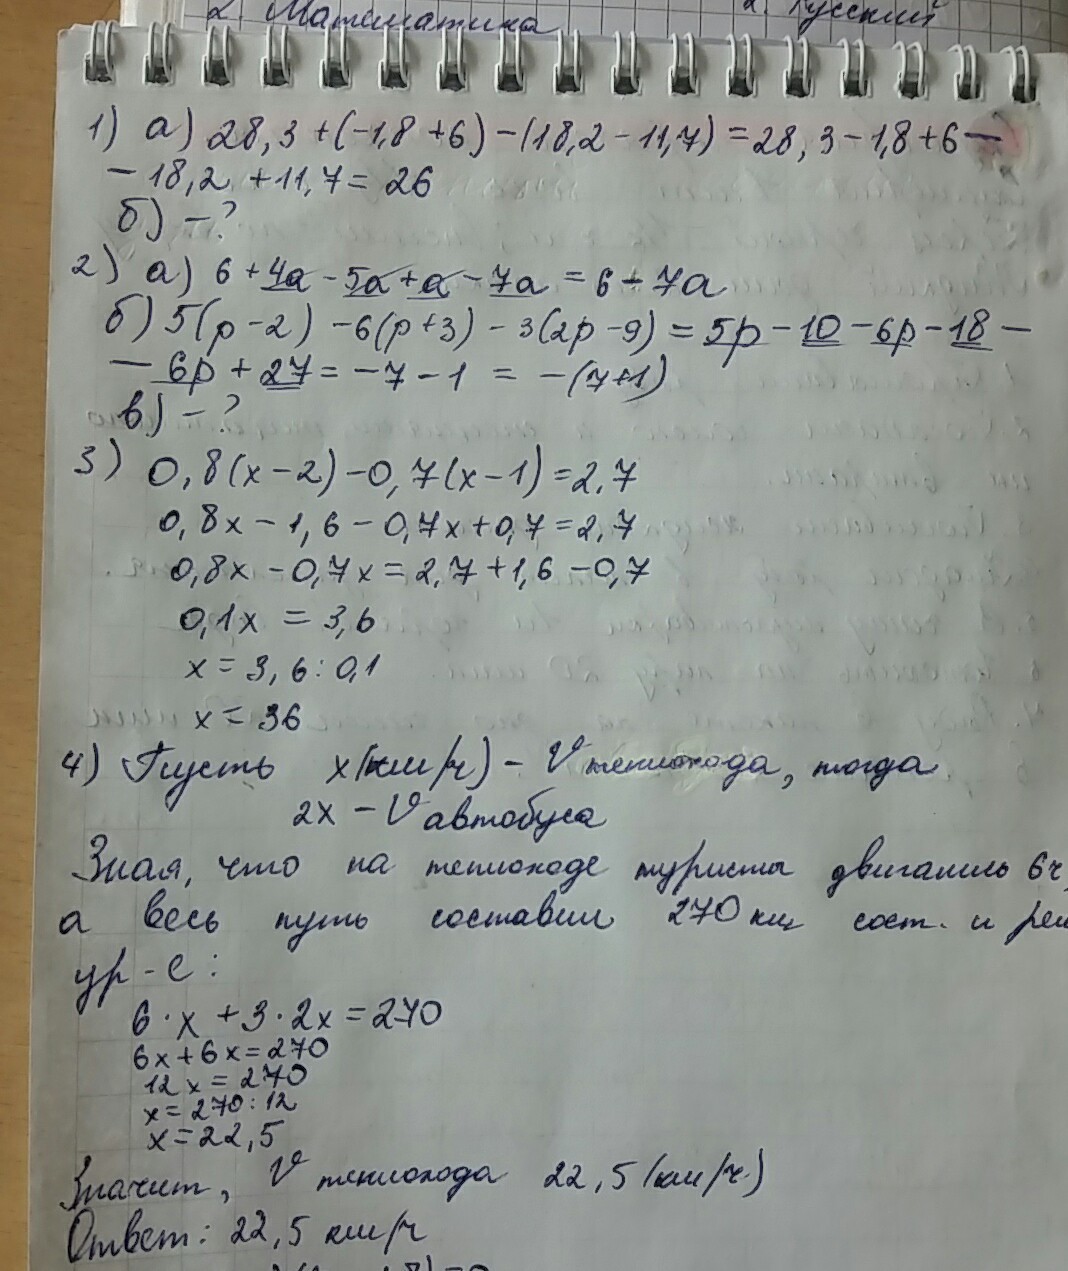 2. Математика 2. Русский
1) а) 28,3 + (-1,8 + 6) - (18,2 - 11,7) = 28,3 - 1,8 + 6 -
- 18,2 + 11,7 = 26
б) - ?
2) а) 6 + 4a - 5a + a - 7a = 6 - 7a
б) 5(p - 2) - 6(p + 3) - 3(2p - 9) = 5p - 10 - 6p - 18 -
- 6p + 27 = -7 - 1 = -(7+1)
в) - ?
3) 0,8(x - 2) - 0,7(x - 1) = 2,7
0,8x - 1,6 - 0,7x + 0,7 = 2,7
0,8x - 0,7x = 2,7 + 1,6 - 0,7
0,1x = 3,6
x = 3,6 : 0,1
x = 36
4) Пусть x(км/ч) - V теплохода, тогда
2x - V автобуса
Зная, что на теплоходе туристы двигались 6ч,
а весь путь составил 270 км, сост. и реш
ур-е:
6 · x + 3 · 2x = 270
6x + 6x = 270
12x = 270
x = 270 : 12
x = 22,5
Значит, V теплохода 22,5 (км/ч)
Ответ: 22,5 км/ч